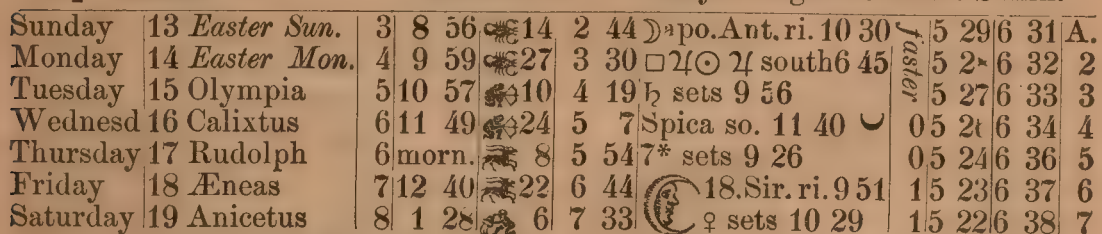 Sunday 13 Easter Sun. 3 8 56 14 2 44 ☽ apo. Ant. ri. 10 30 faster 5 29 6 31 A.
Monday 14 Easter Mon. 4 9 59 27 3 30 □♃☉ ♃ south 6 45 5 6 32 2
Tuesday 15 Olympia 5 10 57 10 4 19 ♄ sets 9 56 5 27 6 33 3
Wednesd 16 Calixtus 6 11 49 24 5 7 Spica so. 11 40 0 5 6 34 4
Thursday 17 Rudolph 6 morn. 8 5 54 7* sets 9 26 0 5 24 6 36 5
Friday 18 Æneas 7 12 40 22 6 44 18. Sir. ri. 9 51 1 5 23 6 37 6
Saturday 19 Anicetus 8 1 28 6 7 33 ♀ sets 10 29 1 5 22 6 38 7